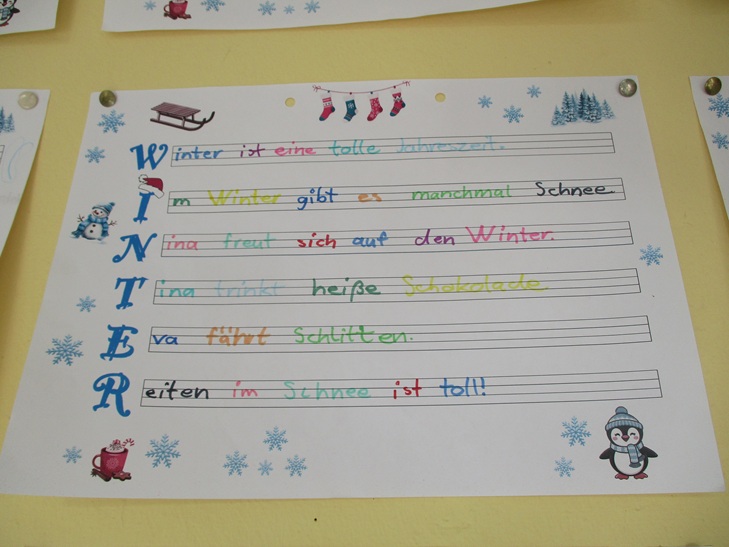 Winter ist eine tolle Jahreszeit.
Im Winter gibt es manchmal Schnee.
Nina freut sich auf den Winter.
Tina trinkt heiße Schokolade.
Eva fährt Schlitten.
Reiten im Schnee ist toll!